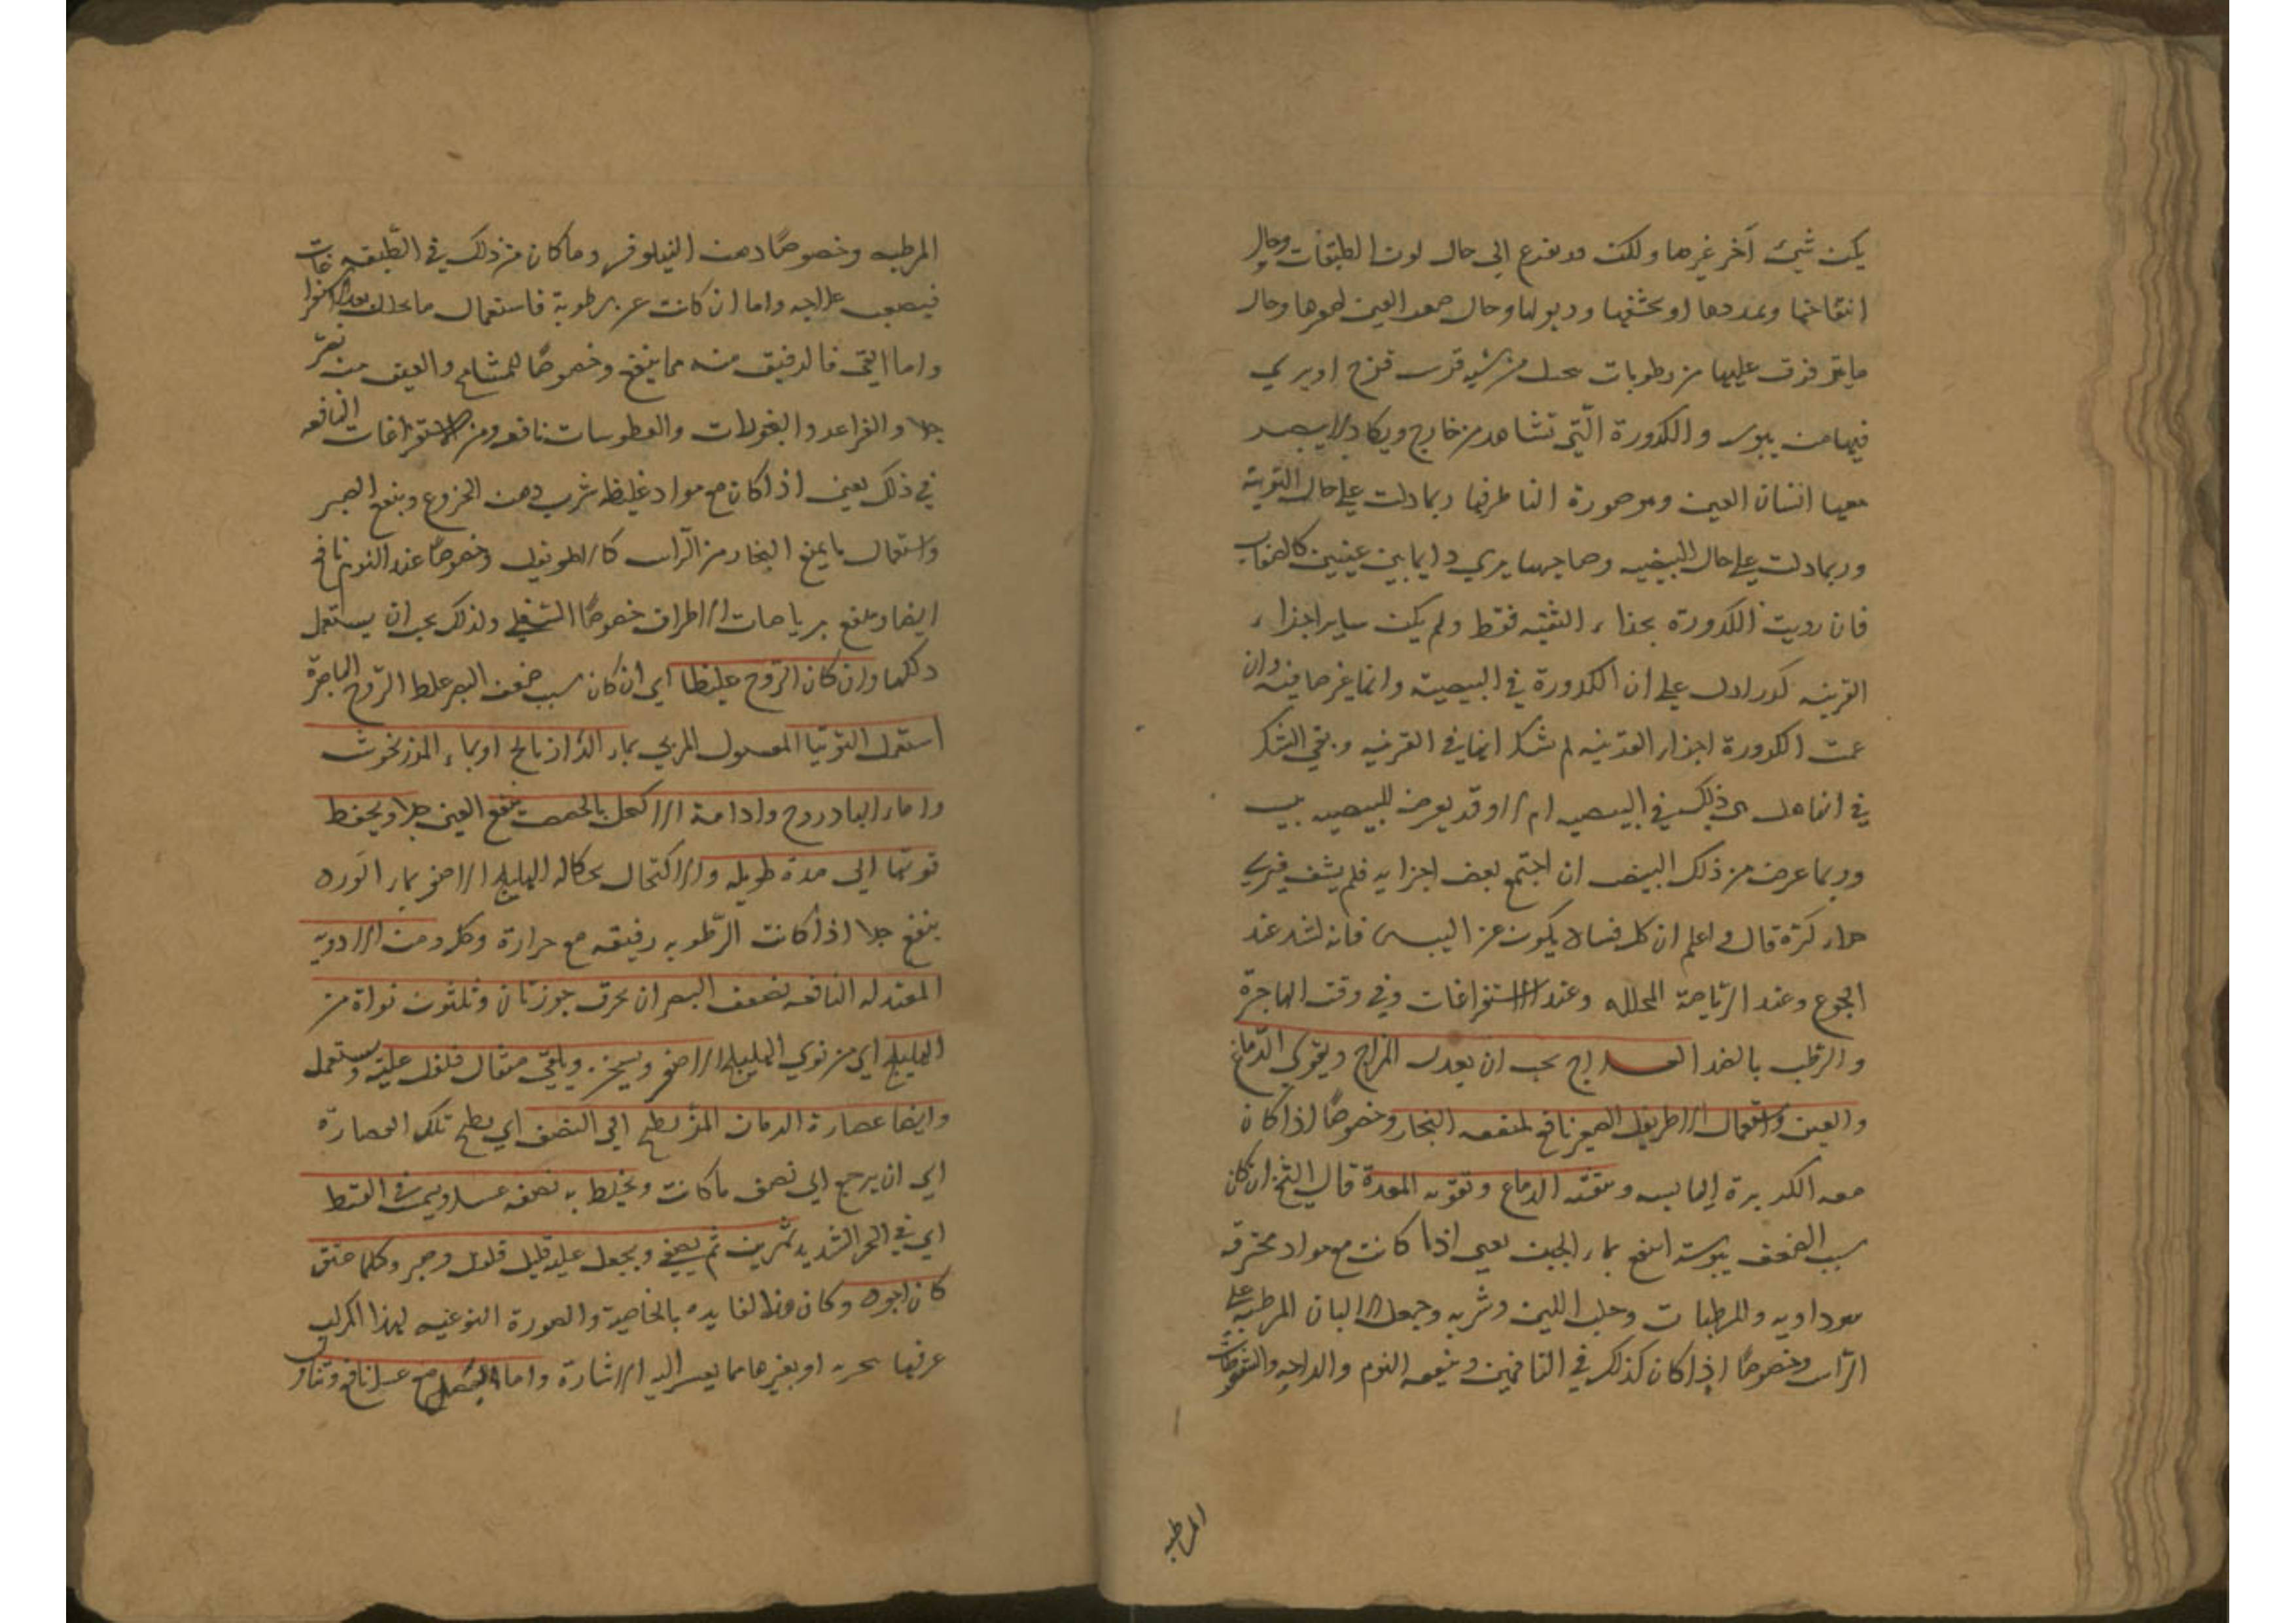 يكن شيئ آخر غيرها ولكن قد يفزع الى حال لون الطبقات وحال
انتفاخها وتمددها او تحشفها وذبولها وحال صغر العين لصغرها وحال
ما يترقرق عليها من رطوبات بخيل من شبه قوس قزح او يرى
فيها من يبوس والكدورة التي تشاهد من خارج ويكاد لا يبصر
معها انسان العين وهو صورة الناظر فيها ربما دلت على حال القرنية
وربما دلت على حال البيضيه وصاحبها يرى دايما بين عينيه كالضباب
فان رويت الكدورة بحذاء الثقبه فقط ولم يكن ساير اجزاء
القرنيه كدرا دل على ان الكدورة في البيضية وانها غير صافيه وان
عمت الكدورة اجزاء القرنيه لم نشك انها في القرنيه وبقي الشك
في انها هل هي كذلك في البيضيه ام لا وقد يعرض للبيضيه يبس
وربما عرض من ذلك اليبس ان اجتمع بعض اجزايه فلم يشف فيرى
حذاه كوة قال واعلم ان كل فساد يكون عن اليبس فانه يشتد عند
الجوع وعند الرياضة المحلله وعند الاستفراغات وفي وقت الهاجرة
والرطب بالضد العلاج يجب ان يعدل المزاج ويقوى الدماغ
والعين واستعمال الاطريفل الصغير نافع لمنعه البخار وخصوصًا اذا كان
معه الكزبرة اليابسه وينقيه الدماغ وتقويه المعدة قال الشيخ ان كان
سبب الضعف يبوسة انتفع بماء الجبن يعني اذا كانت مع مواد محترقه
سوداويه والمرطبات وحلب اللبن وشربه وجعل الالبان المرطبه على
الراس وخصوصًا اذا كان كذلك في الناقهين وينفعه النوم والراحه والسعوطات
المرطبه
المرطبه وخصوصًا دهن النيلوفر وما كان من ذلك في الطبقه
فيصعب علاجه واما ان كانت عن رطوبة فاستعمال ما يحلل بعد الاستفراغات
واما القي فالرقيق منه مما ينفع وخصوصًا للمشايخ والعنيف منه يضر
جدا والغراغر والمخوطات والعطوسات نافعه ومن الاستفراغات النافعه
في ذلك يعني اذا كان مع مواد غليظه شرب دهن الخروع وينفع البصر
واستعمال ما يمنع البخار من الراس كالاطريفل وخصوصًا عند النوم نافع
ايضا وينفع برياضات الاطراف خصوصًا السفلى ولذلك يجب ان يستعمل
دلكها وان كان الروح غليظا اي ان كان سبب ضعف البصر غلظ الروح الباصرة
استعمل التوتيا المغسول المربى بماء الرازيانج او بماء المرزنجوش
واما ماء البادروج وادامة الاكتحال بالحضض ينفع العين جدا ويحفظ
قوتها الى مدة طويله والاكتحال بحكاكه الهليلج الاصفر بماء الورد
ينفع جدا اذا كانت الرطوبه رقيقه مع حرارة وحكة ومن الادوية
المعتدله النافعه لضعف البصر ان يحرق جوزتان وثلثون نواة من
الهليلج اي من نوى الهليلج الاصفر ويسحق ويلقى مثقال فلفل عليه ويستعمل
وايضا عصارة الرمان المز يطبخ الى النصف اي يطبخ تلك العصارة
الى ان يرجع الى نصف ما كانت ويخلط به نصفه عسلا ويشمس في القيظ
اي في الحر الشديد شهرين ثم يصفى ويجعل عليه قليل فلفل وصبر وكلما عتق
كان اجود وكان هذا الفايده بالخاصية والصورة النوعيه لهذا المركب
عرفها بتجربه او بغيرها مما يعسر اليه الاشارة واما البصل مع عسل نافع وتناول